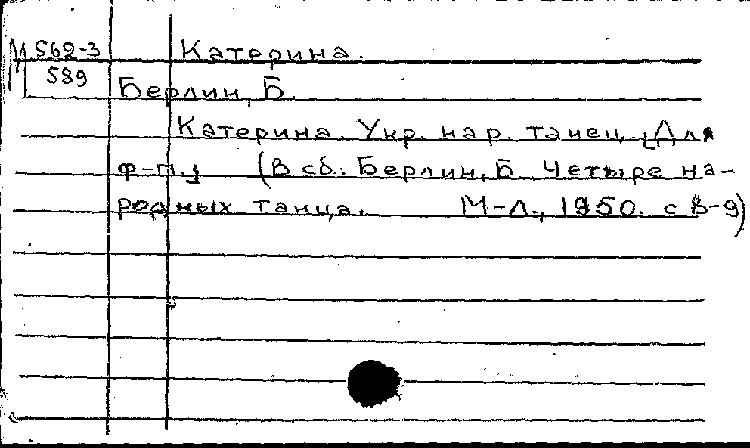 М 562-3 Катерина.
589
Берлин, Б.
Катерина. Укр. нар. танец. [Для
ф-п.] (В сб.: Берлин, Б. Четыре на-
родных танца. М-Л., 1950. с 8-9)